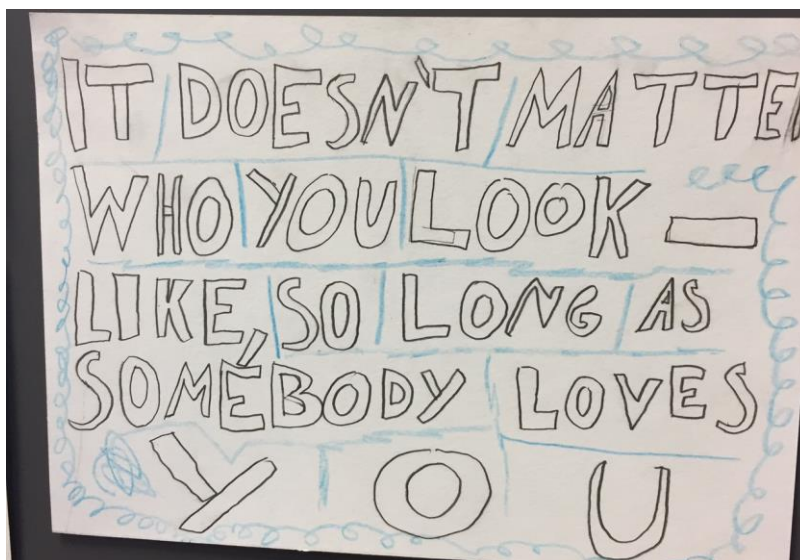 IT DOESN'T MATTER
WHO YOU LOOK —
LIKE, SO LONG AS
SOMEBODY LOVES
YOU